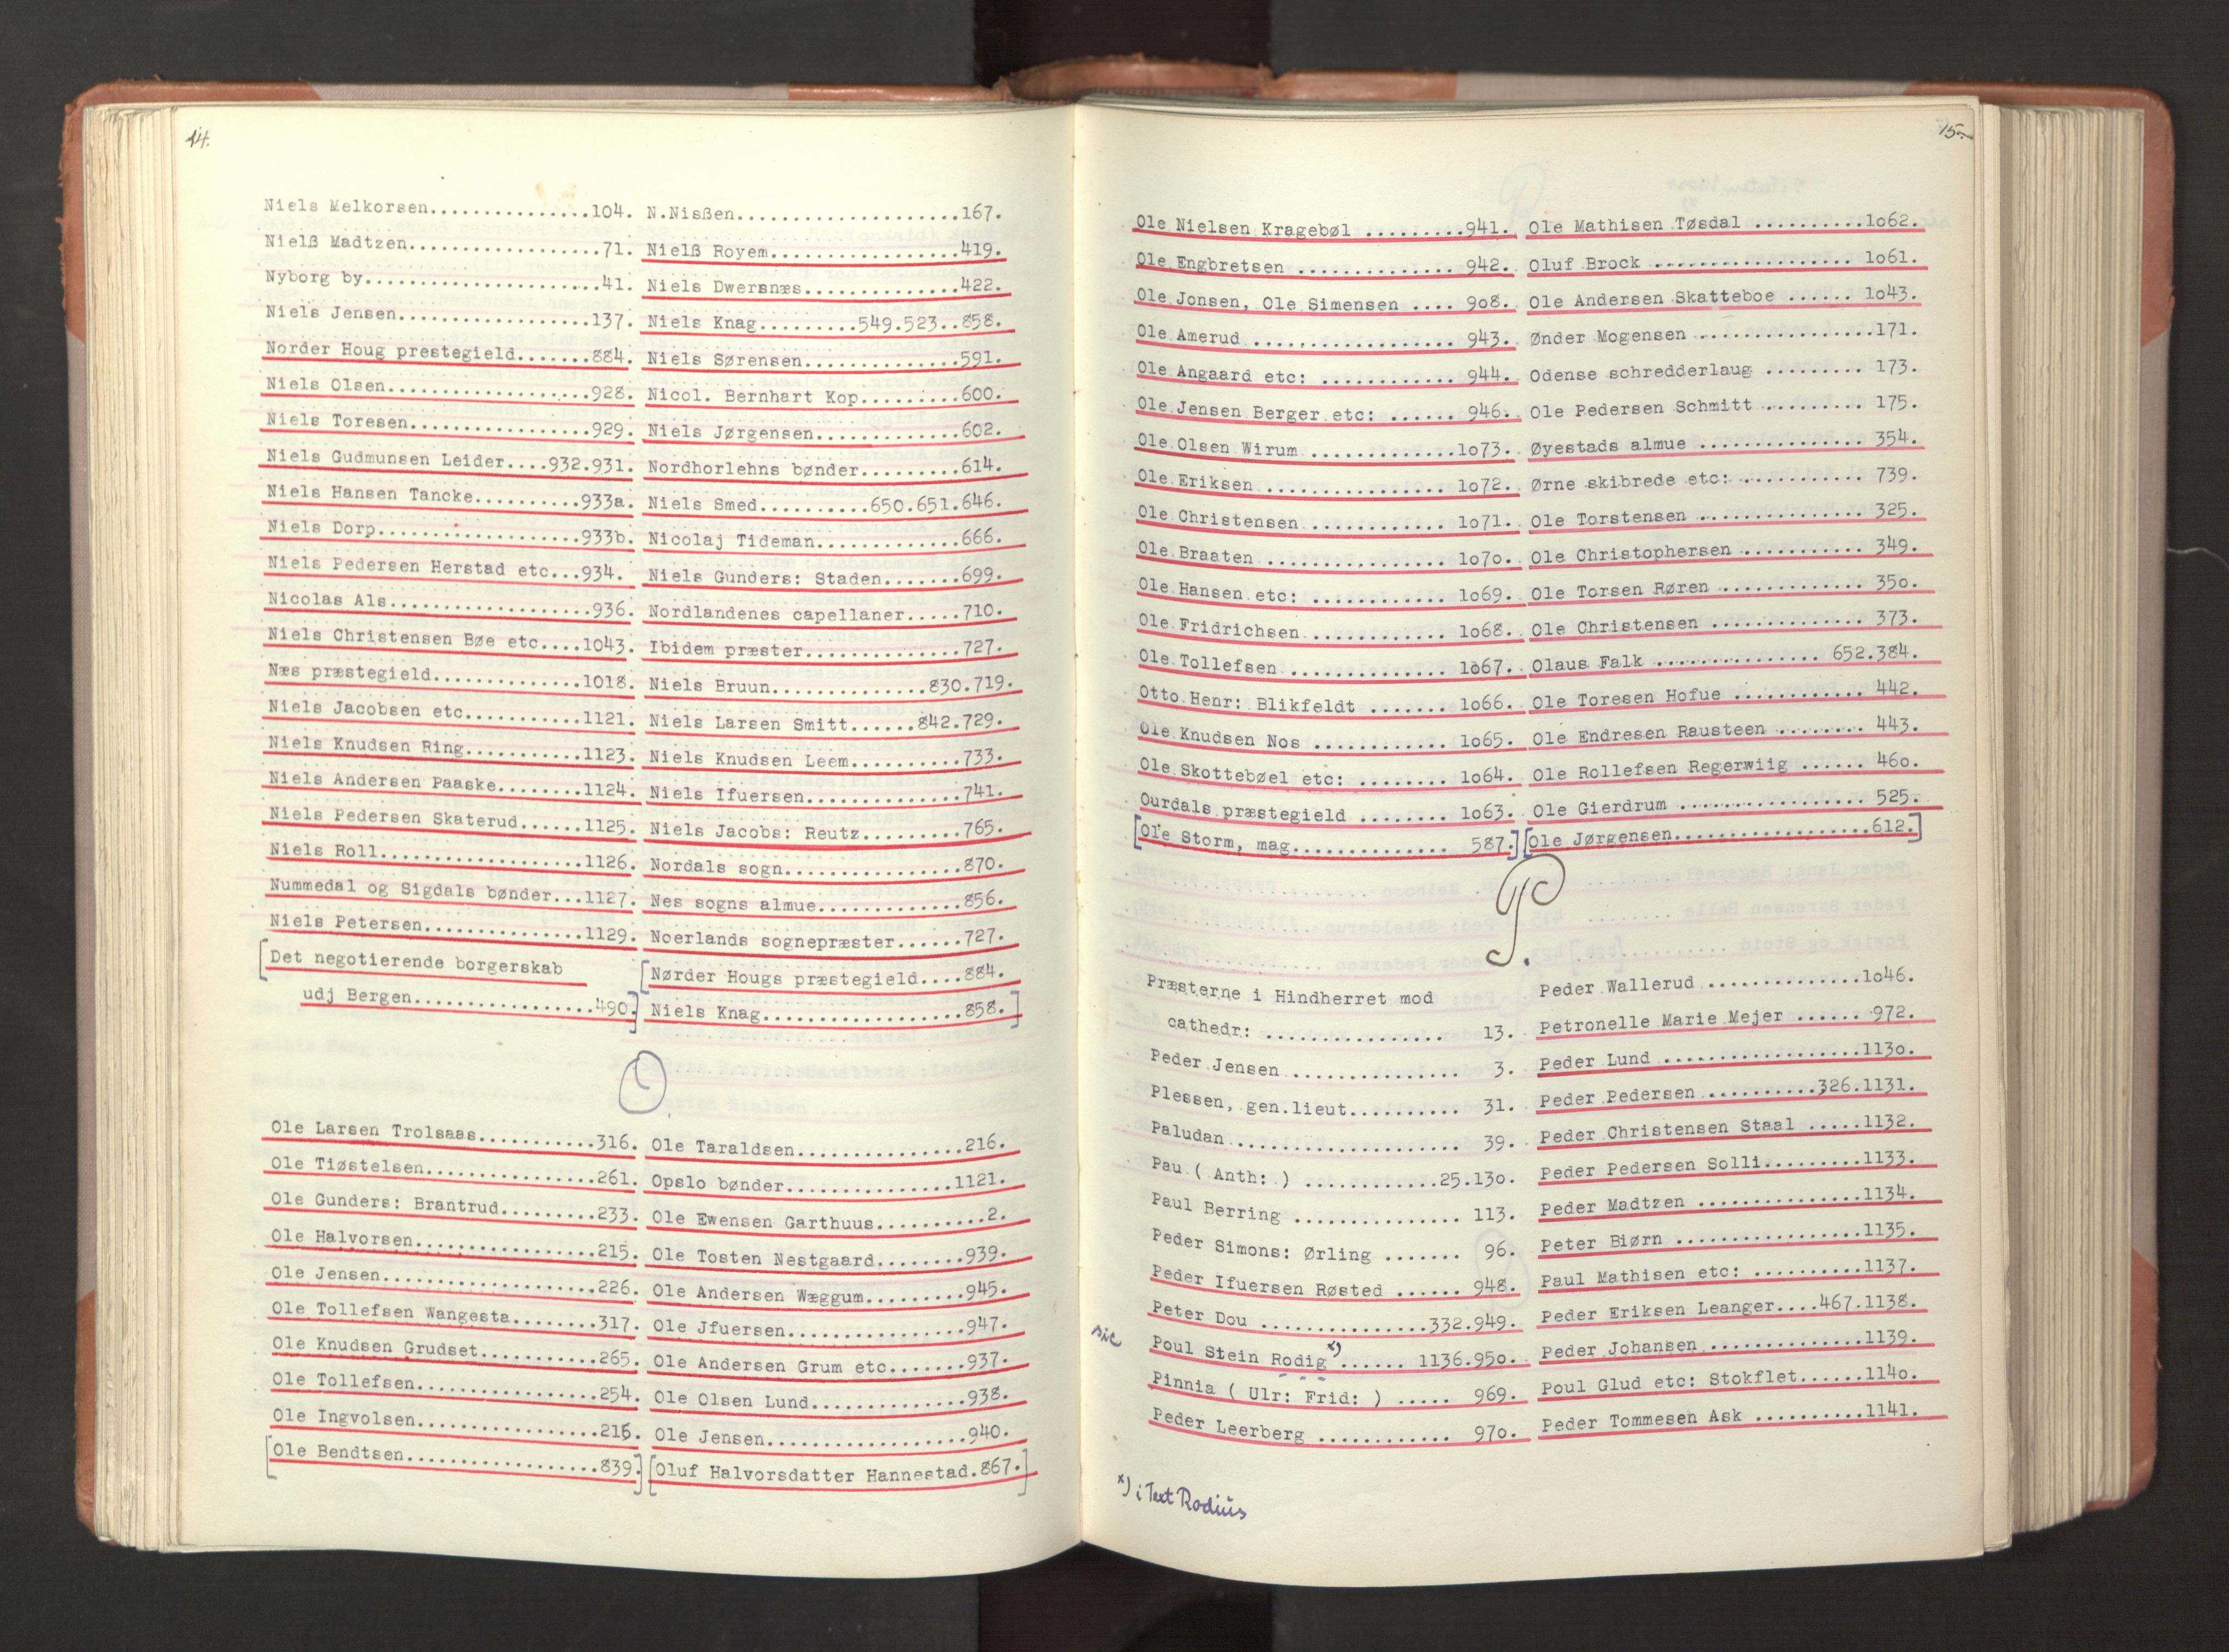 14.
Niels Melkorsen...............104.
Nielß Madtzen..................71.
Nyborg by......................41.
Niels Jensen..................137.
Norder Houg prestegield.......884.
Niels Olsen...................928.
Niels Toresen.................929.
Niels Gudmunsen Leider....932.931.
Niels Hansen Tancke..........933a.
Niels Dorp...................933b.
Niels Pedersen Herstad etc...934.
Nicolas Als...................936.
Niels Christensen Bøe etc....1043.
Næs præstegield..............1018.
Niels Jacobsen etc...........1121.
Niels Knudsen Ring...........1123.
Niels Andersen Paaske........1124.
Niels Pedersen Skaterud......1125.
Niels Roll...................1126.
Nummedal og Sigdals bønder...1127.
Niels Petersen...............1129.
[Det negotierende borgerskab
udj Bergen.................490.]
N.Nisßen.....................167.
Nielß Royem..................419.
Niels Dwersnæs...............422.
Niels Knag.........549.523..858.
Niels Sørensen...............591.
Nicol. Bernhart Kop..........600.
Niels Jørgensen..............602.
Nordhorlehns bønder..........614.
Niels Smed...........650.651.646.
Nicolaj Tideman..............666.
Niels Gunders: Staden........699.
Nordlandenes capellaner......710.
Ibidem præster...............727.
Niels Bruun...............830.719.
Niels Larsen Smitt.......842.729.
Niels Knudsen Leem...........733.
Niels Ifuersen...............741.
Niels Jacobs: Reutz..........765.
Nordals sogn.................870.
Nes sogns almue..............856.
Noerlands sognepræster.......727.
[Nørder Hougs præstegield....884.
Niels Knag...................858.]
O.
Ole Larsen Trolsaas...........316.
Ole Tiøstelsen................261.
Ole Gunders: Brantrud.........233.
Ole Halvorsen.................215.
Ole Jensen....................226.
Ole Tollefsen Wangesta........317.
Ole Knudsen Grudset...........265.
Ole Tollefsen.................254.
Ole Ingvolsen.................216.
[Ole Bendtsen.................839.]
Ole Taraldsen................216.
Opslo bønder................1121.
Ole Ewensen Garthuus...........2.
Ole Tosten Nestgaard.........939.
Ole Andersen Wæggum..........945.
Ole Jfuersen.................947.
Ole Andersen Grum etc........937.
Ole Olsen Lund...............938.
Ole Jensen...................940.
[Oluf Halvorsdatter Hannestad.867.]
15.
Ole Nielsen Kragebøl .........941.
Ole Engbretsen .............. 942.
Ole Jonsen, Ole Simensen .... 908.
Ole Amerud .................. 943.
Ole Angaard etc: ............ 944.
Ole Jensen Berger etc: ...... 946.
Ole Olsen Wirum .............1o73.
Ole Eriksen ................ 1o72.
Ole Christensen ............ 1o71.
Ole Braaten ................ 1o7o.
Ole Hansen etc: ............ 1o69.
Ole Fridrichsen ............ 1o68.
Ole Tollefsen .............. 1o67.
Otto Henr: Blikfeldt ....... 1o66.
Ole Knudsen Nos ............ 1o65.
Ole Skottebøel etc: ........ 1o64.
Ourdals præstegield ........ 1o63.
[Ole Storm, mag.............. 587.]
Ole Mathisen Tøsdal ..........1o62.
Oluf Brock .................. 1o61.
Ole Andersen Skatteboe ...... 1o43.
Ønder Mogensen ................171.
Odense schredderlaug ......... 173.
Ole Pedersen Schmitt ......... 175.
Øyestads almue ............... 354.
Ørne skibrede etc: ........... 739.
Ole Torstensen ............... 325.
Ole Christophersen ........... 349.
Ole Torsen Røren ............. 35o.
Ole Christensen .............. 373.
Olaus Falk ............... 652.384.
Ole Toresen Hofue ............ 442.
Ole Endresen Rausteen ........ 443.
Ole Rollefsen Regerwiig ...... 46o.
Ole Gierdrum ................. 525.
[Ole Jørgensen..................612.]
P.
Præsterne i Hindherret mod
cathedr: ................. 13.
Peder Jensen ................ 3.
Plessen, gen.lieut.......... 31.
Paludan ..................... 39.
Pau ( Anth: ) ............25.13o.
Paul Berring ............... 113.
Peder Simons: Ørling ....... 96.
Peder Ifuersen Røsted ...... 948.
Peter Dou ...............332.949.
sic
Poul Stein Rodig x)...... 1136.95o.
Pinnia ( Ulr: Frid: ) ..... 969.
Peder Leerberg ............ 97o.
Peder Wallerud ..............1o46.
Petronelle Marie Mejer ...... 972.
Peder Lund ..................113o.
Peder Pedersen ..........326.1131.
Peder Christensen Staal .....1132.
Peder Pedersen Solli.........1133.
Peder Madtzen ...............1134.
Peter Biørn .................1135.
Paul Mathisen etc: ..........1137.
Peder Eriksen Leanger....467.1138.
Peder Johansen ..............1139.
Poul Glud etc: Stokflet......114o.
Peder Tommesen Ask ..........1141.
x) i Text Rodiŭs